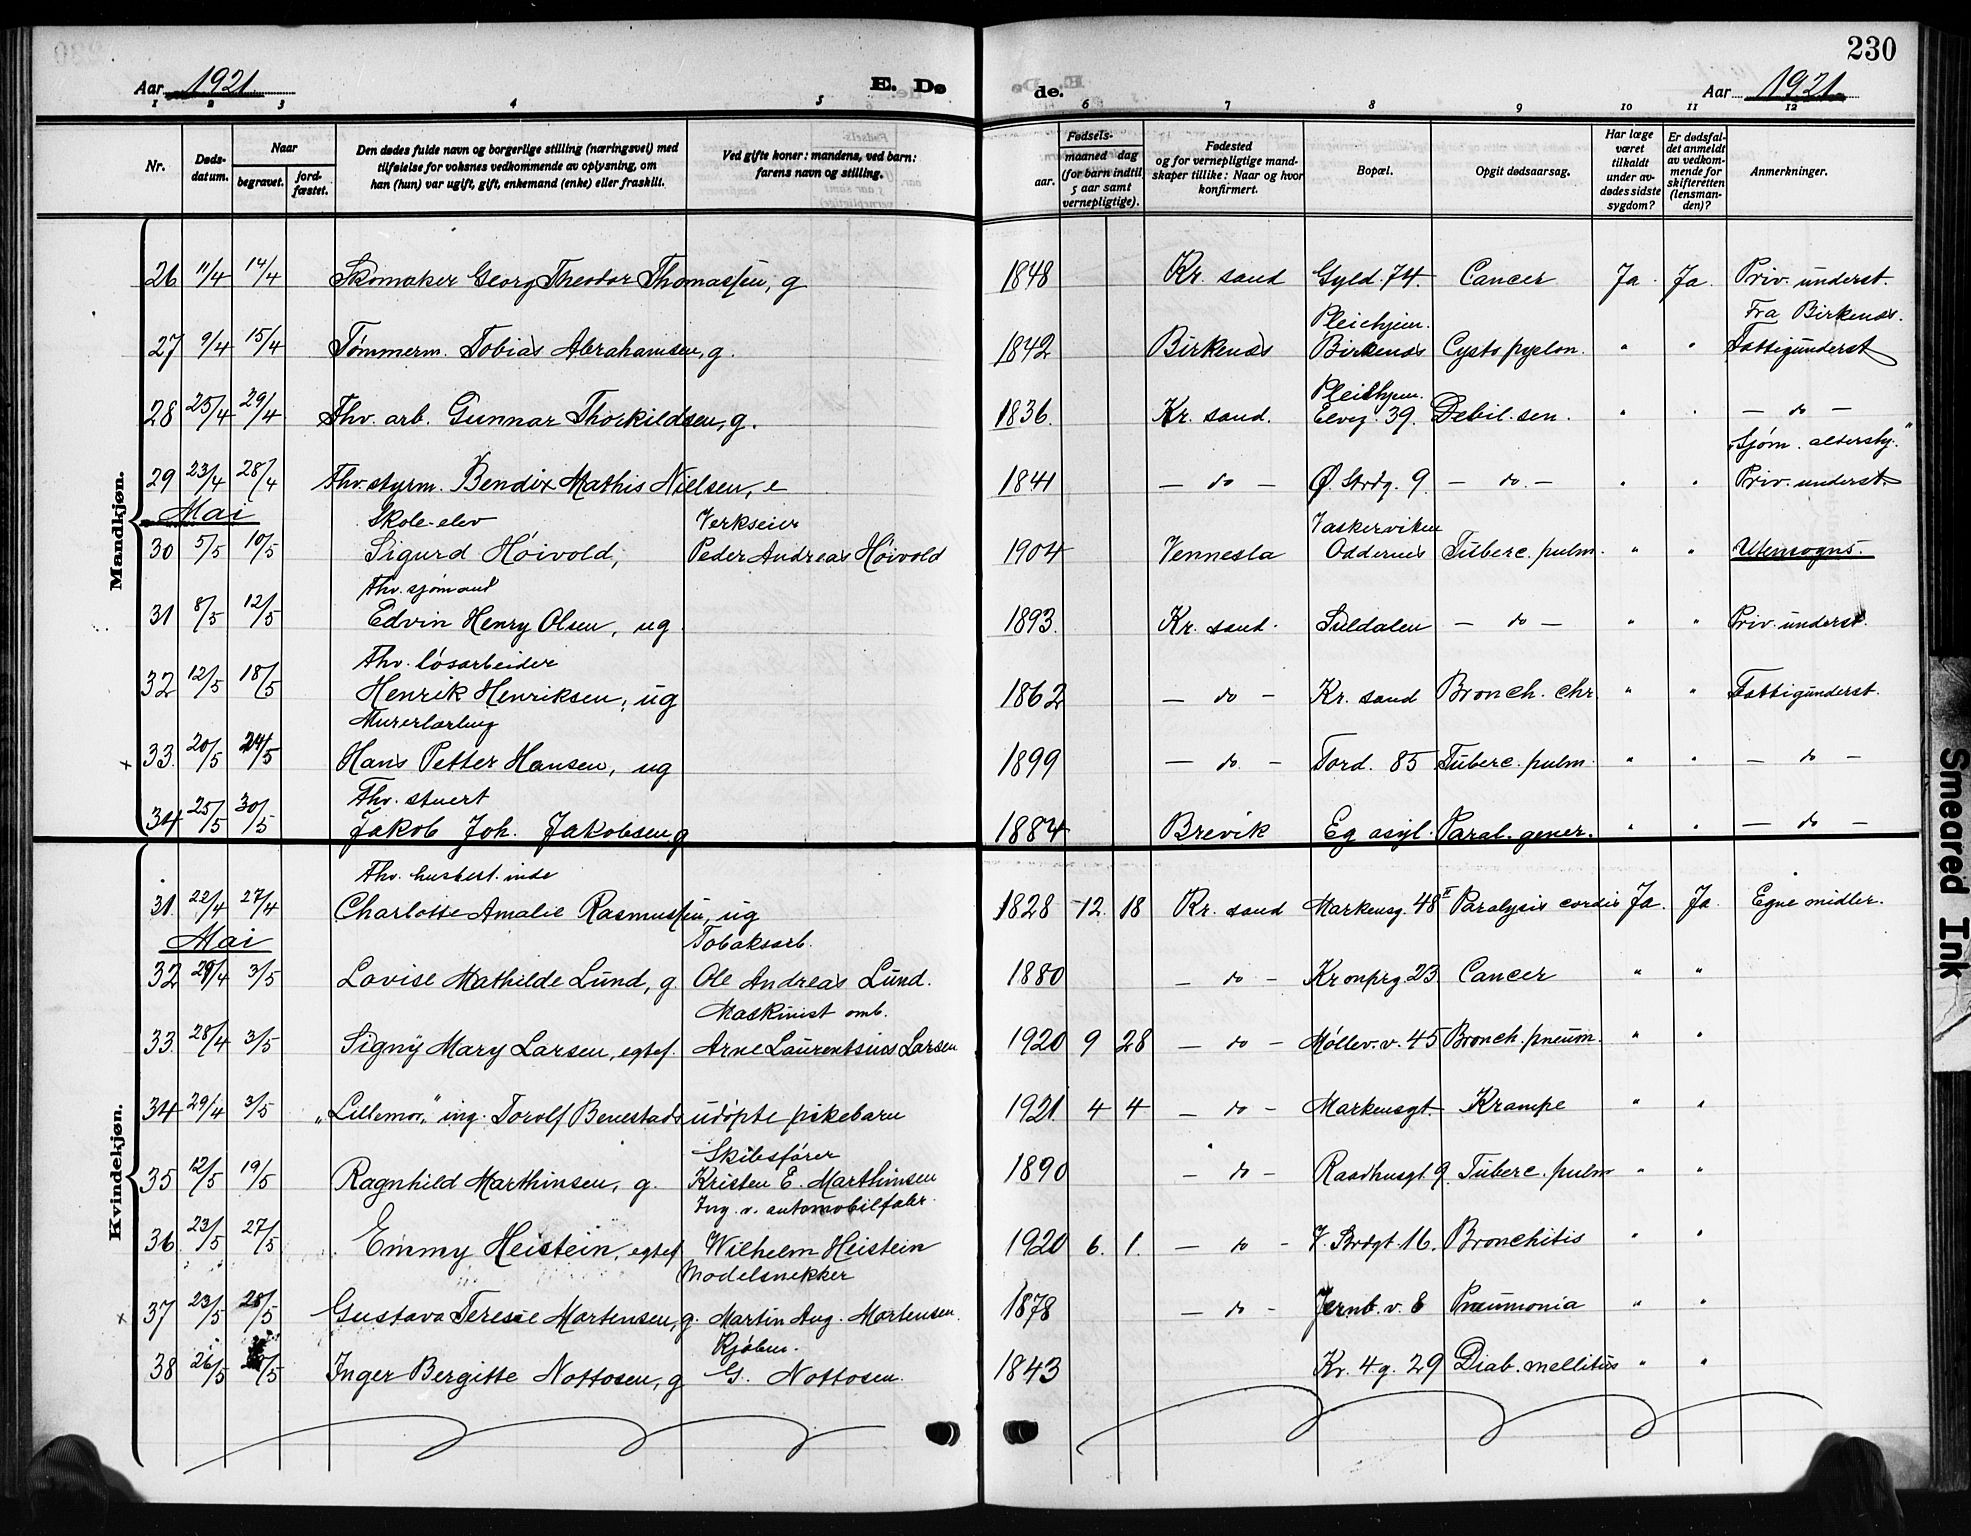 230
Aar 1921 E. Dø de. Aar 1921
1 2 3 4 5 6 7 8 9 10 11 12
Nr.
Døds-
datum.
Naar
begravet.
jord-
fæstet.
Den dødes fulde navn og borgerlige stilling (næringsvei) med
tilføielse for voksnes vedkommende av oplysning, om
han (hun) var ugift, gift, enkemand (enke) eller fraskilt.
Ved gifte koner: mandens, ved barn:
farens navn og stilling.
Fødsels-
aar.
maaned dag
(for barn indtil
5 aar samt
vernepligtige).
Fødested
og for vernepligtige mand-
skaper tillike: Naar og hvor
konfirmert.
Bopæl.
Opgit dødsaarsag.
Har læge
været
tilkaldt
under av-
dødes sidste
sygdom?
Er dødsfal-
det anmeldt
av vedkom-
mende for
skifteretten
(lensman-
den)?
Anmerkninger.
Mandkjøn.
26 11/4 14/4 Skomaker Georg Theodor Thomassen, g 1848 Kr. sand Gyld. 74. Cancer Ja. Ja. Priv. underst.
Pleiehjem. Fra Birkenæs.
27 9/4 15/4 Tømmerm. Tobias Abrahamsen, g. 1842 Birkenæs Birkenæs Cysto pyelon. " " Fattigunderst
Pleiehjem.
28 25/4 29/4 Fhv. arb. Gunnar Thorkildsen, g. 1836. Kr. sand. Elveg. 39. Debil. sen. " " — do —
"Sjøm. aldershj."
29 23/4 28/4 Fhv. styrm. Bendix Mathis Nielsen, e 1841 — do — Ø. Strdg. 9. — do. — " " Priv. underst.
Mai Skole-elev Verkseier Vaskerviken
30 5/5 10/5 Sigurd Høivold, Peder Andreas Høivold 1904 Vennesla Oddernes Tuberc. pulm. " " Utensogns.
Fhv. sjømand
31 8/5 12/5 Edvin Henry Olsen, ug. 1893. Kr. sand. Suldalen — do — " " Priv. underst.
Fhv. løsarbeider
32 12/5 18/5 Henrik Henriksen, ug 1862 — do — Kr. sand Bronch. chr. " " Fattigunderst.
Murerlærling
x 33. 20/5 24/5 Hans Petter Hansen, ug 1899 — do. — Tord. 85 Tuberc. pulm. " " — do —
Fhv. stuert
34 25/5 30/5 Jakob Joh. Jakobsen, g 1884 Brevik Eg asyl. Paral. gener. " " — do —
Kvindekjøn.
Fhv. husbest. inde
31. 22/4 27/4 Charlotte Amalie Rasmussen, ug 1828 12. 18 Kr. sand Markensg. 48 II Paralysis cordis Ja. Ja. Egne midler.
Mai Tobaksarb.
32 29/4 3/5 Lovise Mathilde Lund, g Ole Andreas Lund. 1880 — do — Kronprg. 23 Cancer " "
Maskinist omb.
33. 28/4 3/5 Signy Mary Larsen, egtef. Arne Laurentsius Larsen 1920 9 28 — do — Møllev. v. 45 Bronch. pneum. " "
34 29/4 3/5 "Lillemor," ing. Torolf Benestads udøpte pikebarn 1921. 4 4 — do — Markensgt. Krampe " "
Skibsfører
35 12/5 19/5 Ragnhild Marthinsen, g. Kristen E. Marthinsen 1890 — do — Raadhusgt 9. Tuberc. pulm " "
Ing. v. automobilfabr.
36. 23/5 27/5 Emmy Heistein, egtef Wilhelm Heistein 1920 6. 1. — do — V. Strdgt. 16. Bronchitis " "
Modelsnekker
x 37 23/5 28/5 Gustava Teresie Mortensen, g. Martin Aug. Mortensen. 1878 — do — Jernb. v. 8 Pneumonia " "
Kjøbm.
38 26/5 Inger Bergitte Nottosen, g G. Nottosen. 1843 Kr. 4. g. 29 Diab. mellitus " "
Smeared Ink